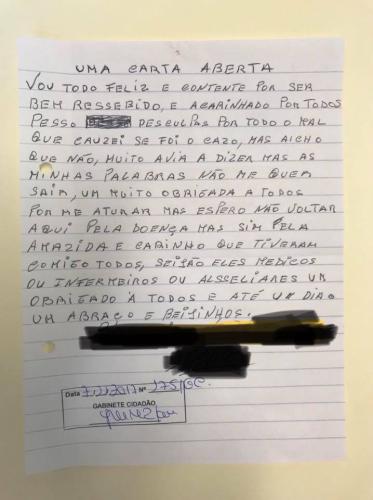 UMA CARTA ABERTA
VOU TODO FELIZ E CONTENTE POR SER
BEM RESSEBIDO, E ACARINHADO POR TODOS
PESSO DESCULPAS POR TODO O MAL
QUE CAUZEI SE FOI O CAZO, MAS AICHO
QUE NÃO, MUITO AVIA A DIZER MAS AS
MINHAS PALABRAS NÃO ME QUEREM
SAIR, UM MUITO OBRIGADA A TODOS
POR ME ATURAR MAS ESPERO NÃO VOLTAR
AQUI PELA DOENÇA MAS SIM PELA
AMAZIDA E CARINHO QUE TIVERAM
COMIGO TODOS, SEISÃO ELES MEDICOS
OU INFERMEIROS OU ALSSELIARES UM
OBRIGADO À TODOS E ATÉ UM DIA
UM ABRAÇO E BEIJINHOS.
Data Nº
GABINETE CIDADÃO